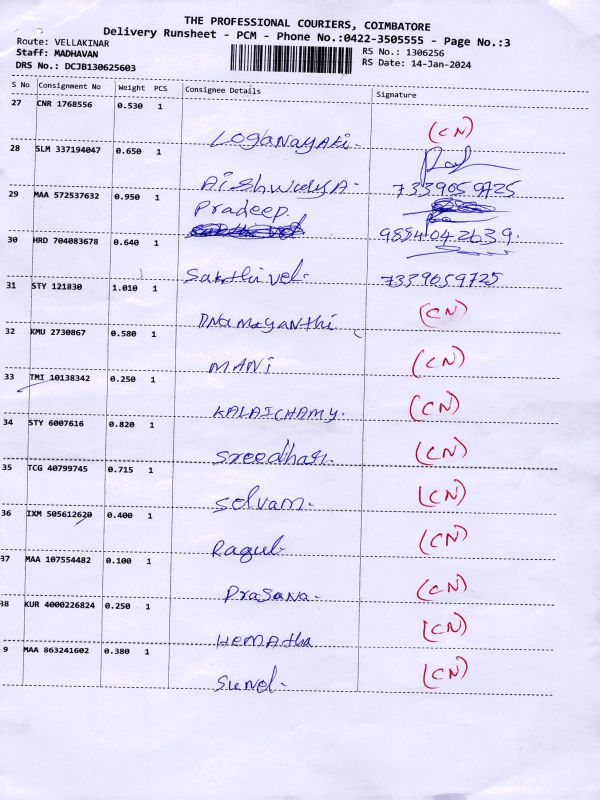 THE PROFESSIONAL COURIERS, COIMBATORE
Delivery Runsheet - PCM - Phone No.:0422-3505555 - Page No.:3
Route: VELLAKINAR
RS No.: 1306256
Staff: MADHAVAN
RS Date: 14-Jan-2024
DRS No.: DCJB130625603
S No Consignment No Weight PCS Consignee Details Signature
27 CNR 1768556 0.530 1
Loganayaki. (CN)
28 SLM 337194047 0.650 1
Aishwarya. 7339059725
29 MAA 572537632 0.950 1
Pradeep.
9884042639.
30 HRD 704083678 0.640 1
Sakthivel. 7339059725
31 STY 121830 1.010 1
(CN)
Dhamayanthi
32 KMU 2730867 0.580 1
MANi (CN)
33 TMI 10138342 0.250 1
KALAICHAMY. (CN)
34 STY 6007616 0.820 1
Sreedhar. (CN)
35 TCG 40799745 0.715 1
Selvam. (CN)
36 IXM 505612620 0.400 1
Ragul. (CN)
37 MAA 107554482 0.100 1
Prasana. (CN)
38 KUR 4000226824 0.250 1
HEMAtha (CN)
9 MAA 863241602 0.380 1
(CN)